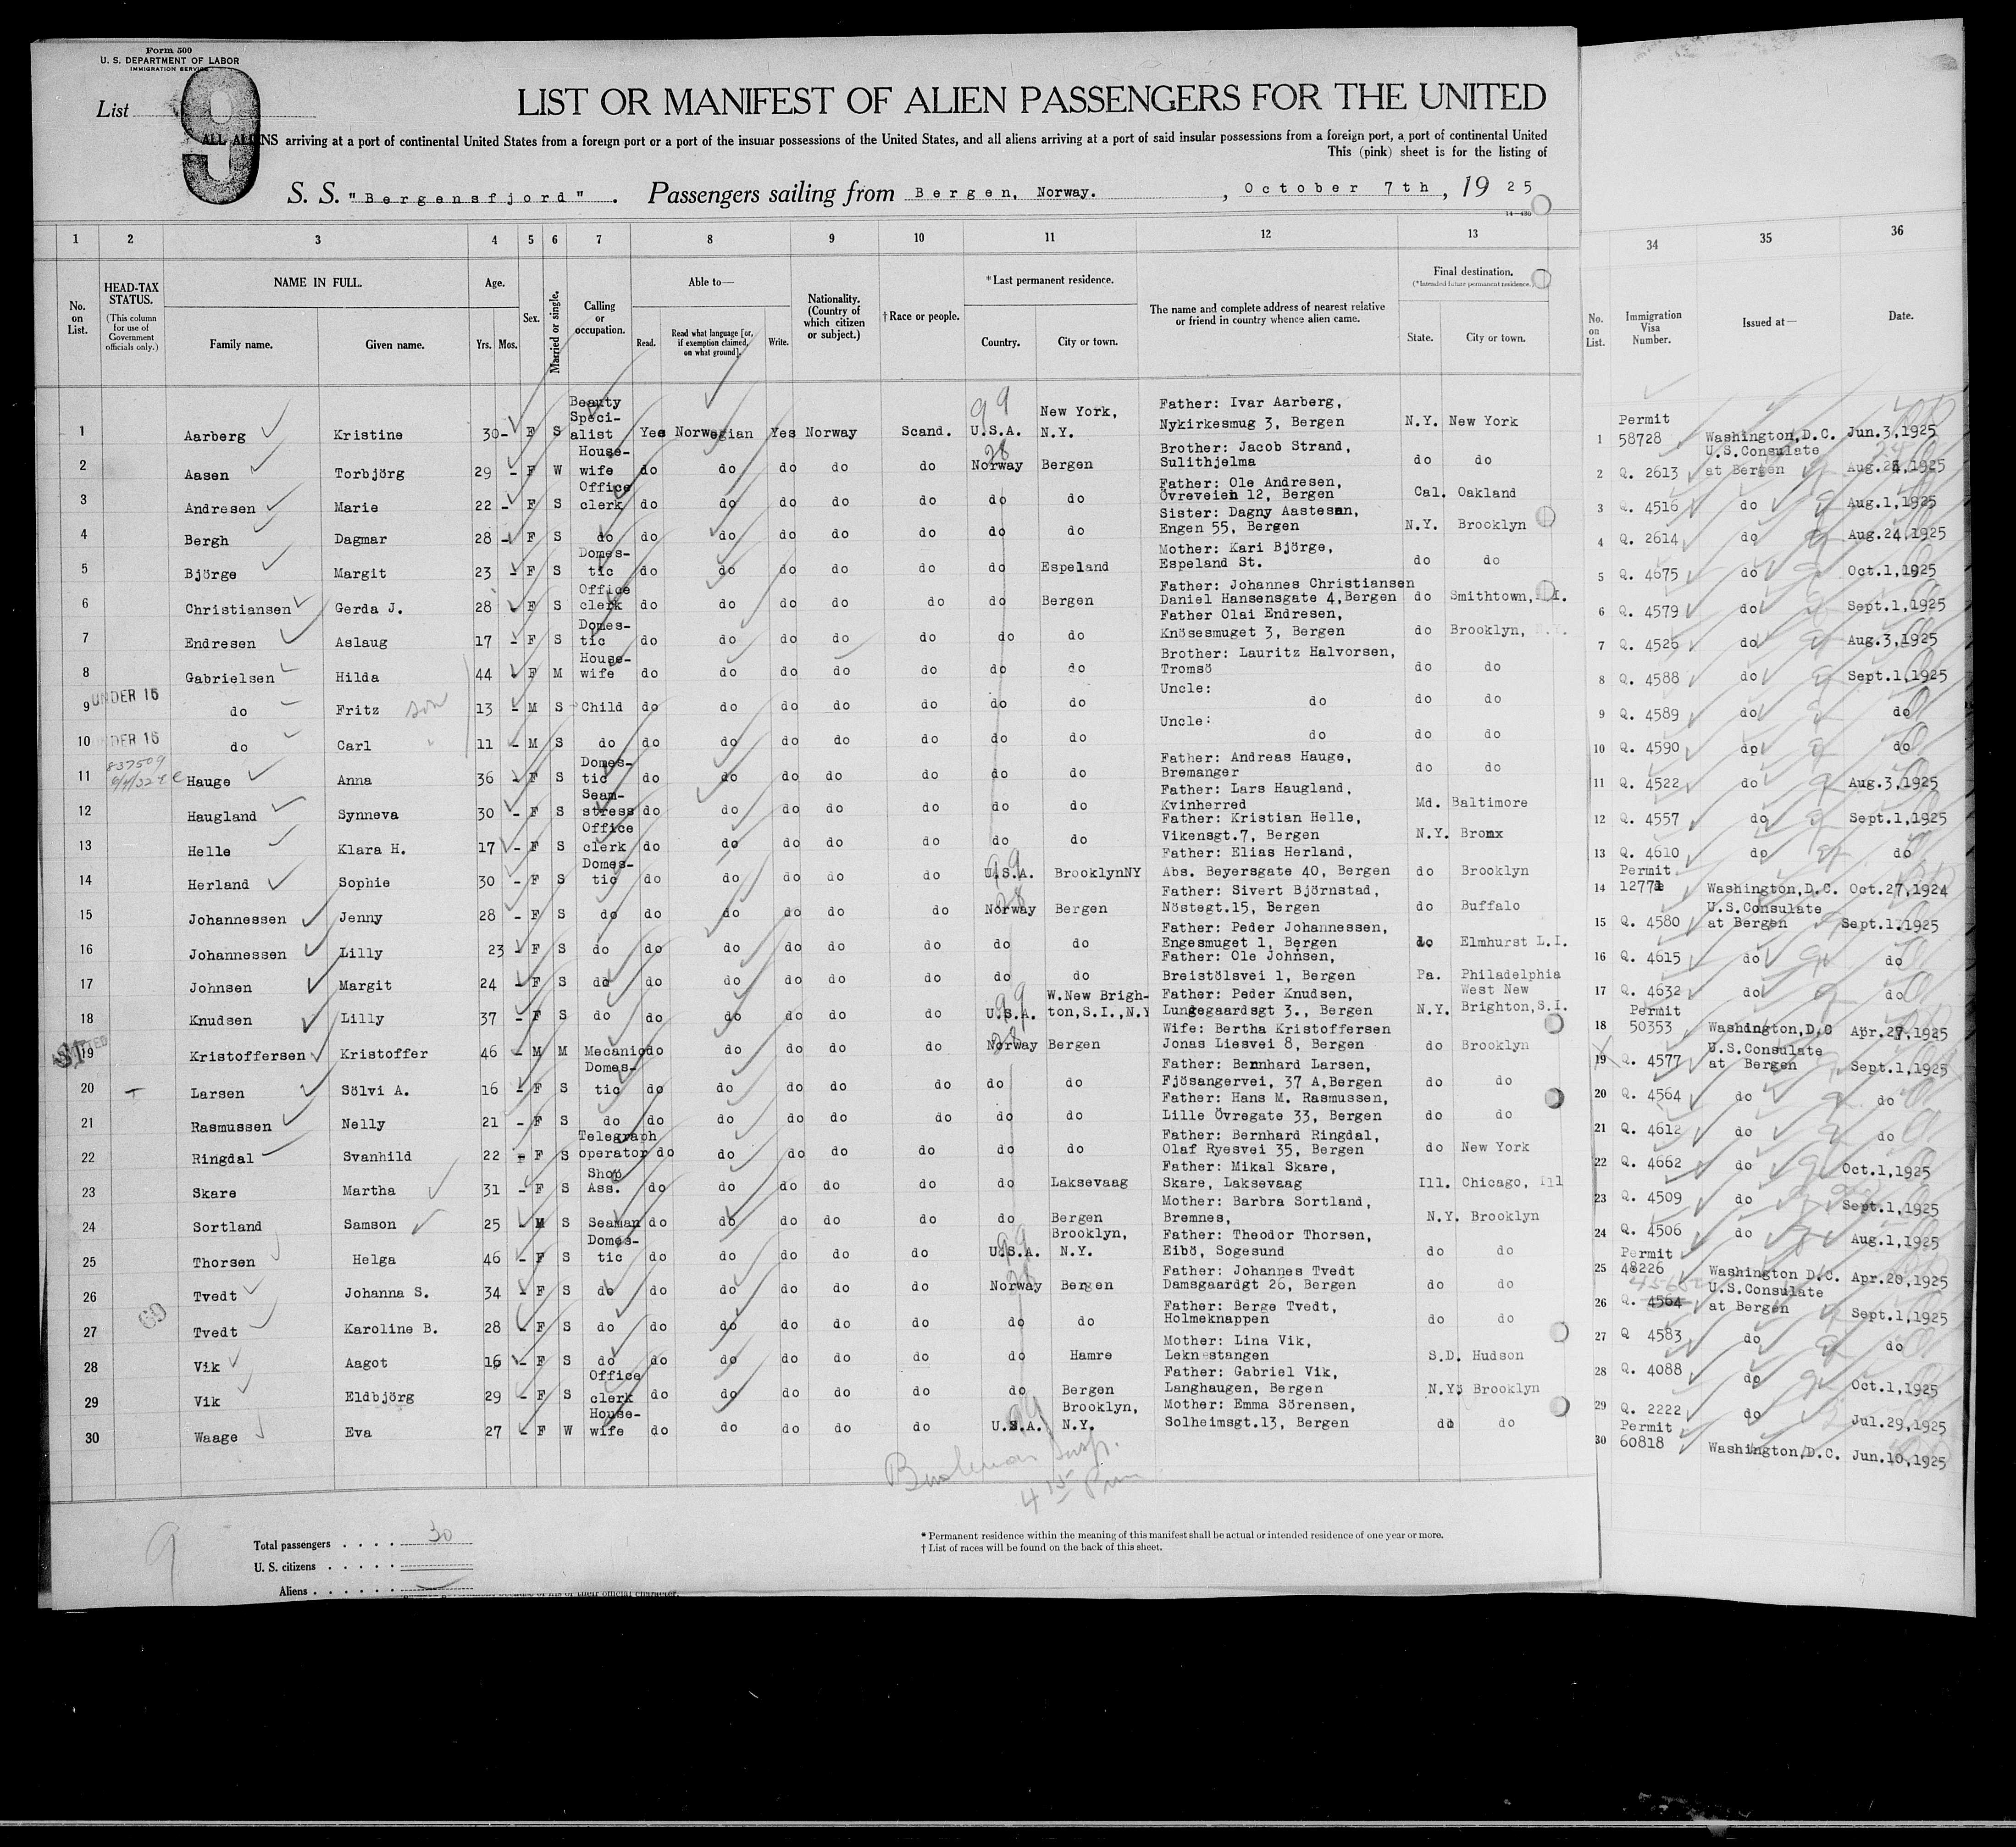 Form 500
U. S. DEPARTMENT OF LABOR
IMMIGRATION SERVICE
List 9
LIST OR MANIFEST OF ALIEN PASSENGERS FOR THE UNITED
ALL ALIENS arriving at a port of continental United States from a foreign port or a port of the insular possessions of the United States, and all aliens arriving at a port of said insular possessions from a foreign port, a port of continental United
This (pink) sheet is for the listing of
S. S. "Bergensfjord". Passengers sailing from Bergen, Norway. , October 7th, 1925
14-430
1 2 3 4 5 6 7 8 9 10 11 12 13 34 35 36
No. on List.
HEAD-TAX STATUS.
(This column for use of Government officials only.)
NAME IN FULL.
Family name. Given name.
Age.
Yrs. Mos.
Sex.
Married or single.
Calling or occupation.
Able to—
Read. Read what language [or, if exemption claimed, on what ground]. Write.
Nationality. (Country of which citizen or subject.)
†Race or people.
*Last permanent residence.
Country. City or town.
The name and complete address of nearest relative or friend in country whence alien came.
Final destination.
(*Intended future permanent residence.)
State. City or town.
No. on List.
Immigration Visa Number.
Issued at—
Date.
1 Aarberg Kristine 30 - F S Beauty Speci-alist Yes Norwegian Yes Norway Scand. 99 U.S.A. New York, N.Y. Father: Ivar Aarberg, Nykirkesmug 3, Bergen N.Y. New York 1 Permit 58728 Washington,D.C. Jun.3,1925
2 Aasen Torbjörg 29 - F W House-wife do do do do do 28 Norway Bergen Brother: Jacob Strand, Sulithjelma do do 2 Q. 2613 U.S.Consulate at Bergen Aug.24,1925
3 Andresen Marie 22 - F S Office clerk do do do do do do do Father: Ole Andresen, Övreveien 12, Bergen Cal. Oakland 3 Q. 4516 do Aug.1,1925
4 Bergh Dagmar 28 - F S do do do do do do do do Sister: Dagny Aastesen, Engen 55, Bergen N.Y. Brooklyn 4 Q. 2614 do Aug.24,1925
5 Björge Margit 23 - F S Domes-tic do do do do do do Espeland Mother: Kari Björge, Espeland St. do do 5 Q. 4675 do Oct.1,1925
6 Christiansen Gerda J. 28 - F S Office clerk do do do do do do Bergen Father: Johannes Christiansen Daniel Hansensgate 4,Bergen do Smithtown, L.I. 6 Q. 4579 do Sept.1,1925
7 Endresen Aslaug 17 - F S Domes-tic do do do do do do do Father Olai Endresen, Knösesmuget 3, Bergen do Brooklyn, N.Y. 7 Q. 4526 do Aug.3,1925
8 Gabrielsen Hilda 44 F M House-wife do do do do do do do Brother: Lauritz Halvorsen, Tromsö do do 8 Q. 4588 do Sept.1,1925
9 UNDER 16 do Fritz son 13 - M S Child do do do do do do do Uncle: do do do 9 Q. 4589 do do
10 UNDER 16 do Carl 11 - M S do do do do do do do do Uncle: do do do 10 Q. 4590 do do
11 837509 Hauge Anna 36 - F S Domes-tic do do do do do do do Father: Andreas Hauge, Bremanger do do 11 Q. 4522 do Aug.3,1925
12 Haugland Synneva 30 - F S Seam-stress do do do do do do do Father: Lars Haugland, Kvinherred Md. Baltimore 12 Q. 4557 do Sept.1,1925
13 Helle Klara H. 17 - F S Office clerk do do do do do do do Father: Kristian Helle, Vikensgt.7, Bergen N.Y. Bronx 13 Q. 4610 do do
14 Herland Sophie 30 - F S Domes-tic do do do do do 99 U.S.A. BrooklynNY Father: Elias Herland, Abs. Beyersgate 40, Bergen do Brooklyn 14 Permit 12771 Washington,D.C. Oct.27,1924
15 Johannessen Jenny 28 - F S do do do do do do 28 Norway Bergen Father: Sivert Björnstad, Nöstegt.15, Bergen do Buffalo 15 Q. 4580 U.S.Consulate at Bergen Sept.1.1925
16 Johannessen Lilly 23 - F S do do do do do do do do Father: Peder Johannessen, Engesmuget 1, Bergen do Elmhurst L.I. 16 Q. 4615 do do
17 Johnsen Margit 24 - F S do do do do do do do do Father: Ole Johnsen, Breistölsvei 1, Bergen Pa. Philadelphia 17 Q. 4632 do do
18 Knudsen Lilly 37 - F S do do do do do do 99 U.S.A. W.New Brigh-ton,S.I.,N.Y Father: Peder Knudsen, Lungegaardsgt 3., Bergen N.Y. West New Brighton,S.I. 18 Permit 50353 Washington,D.C Apr.27,1925
19 SI Kristoffersen Kristoffer 46 - M M Mecanic do do do do do 28 Norway Bergen Wife: Bertha Kristoffersen Jonas Liesvei 8, Bergen do Brooklyn 19 Q. 4577 U.S.Consulate at Bergen Sept.1,1925
20 Larsen Sölvi A. 16 - F S Domes-tic do do do do do do do Father: Bernhard Larsen, Fjösangervei, 37 A,Bergen do do 20 Q. 4564 do do
21 Rasmussen Nelly 21 - F S do do do do do do do do Father: Hans M. Rasmussen, Lille Övregate 33, Bergen do do 21 Q. 4612 do do
22 Ringdal Svanhild 22 - F S Telegraph operator do do do do do do do Father: Bernhard Ringdal, Olaf Ryesvei 35, Bergen do New York 22 Q. 4662 do Oct.1,1925
23 Skare Martha 31 - F S Shop Ass. do do do do do do Laksevaag Father: Mikal Skare, Skare, Laksevaag Ill. Chicago, Ill 23 Q. 4509 do Sept.1,1925
24 Sortland Samson 25 - M S Seaman do do do do do do Bergen Mother: Barbra Sortland, Bremnes, N.Y. Brooklyn 24 Q. 4506 do Aug.1,1925
25 Thorsen Helga 46 - F S Domes-tic do do do do do 99 U.S.A. Brooklyn, N.Y. Father: Theodor Thorsen, Eibö, Sogesund do do 25 Permit 48226 Washington D.C. Apr.20,1925
26 Tvedt Johanna S. 34 - F S do do do do do do 28 Norway Bergen Father: Johannes Tvedt Damsgaardgt 26, Bergen do do 26 Q. 4564 U.S.Consulate at Bergen Sept.1,1925
27 Tvedt Karoline B. 28 - F S do do do do do do do do Father: Berge Tvedt, Holmeknappen do do 27 Q 4583 do do
28 Vik Aagot 16 - F S do do do do do do do Hamre Mother: Lina Vik, Leknestangen S.D. Hudson 28 Q. 4088 do Oct.1,1925
29 Vik Eldbjörg 29 - F S Office clerk do do do do do do Bergen Father: Gabriel Vik, Langhaugen, Bergen N.Y. Brooklyn 29 Q. 2222 do Jul.29,1925
30 Waage Eva 27 - F W House-wife do do do do do 99 U.S.A. Brooklyn, N.Y. Mother: Emma Sörensen, Solheimsgt.13, Bergen do do 30 Permit 60818 Washington,D.C. Jun.10,1925
9
Total passengers . . . . 30
U. S. citizens . . . . .
Aliens . . . . . .
* Permanent residence within the meaning of this manifest shall be actual or intended residence of one year or more.
† List of races will be found on the back of this sheet.